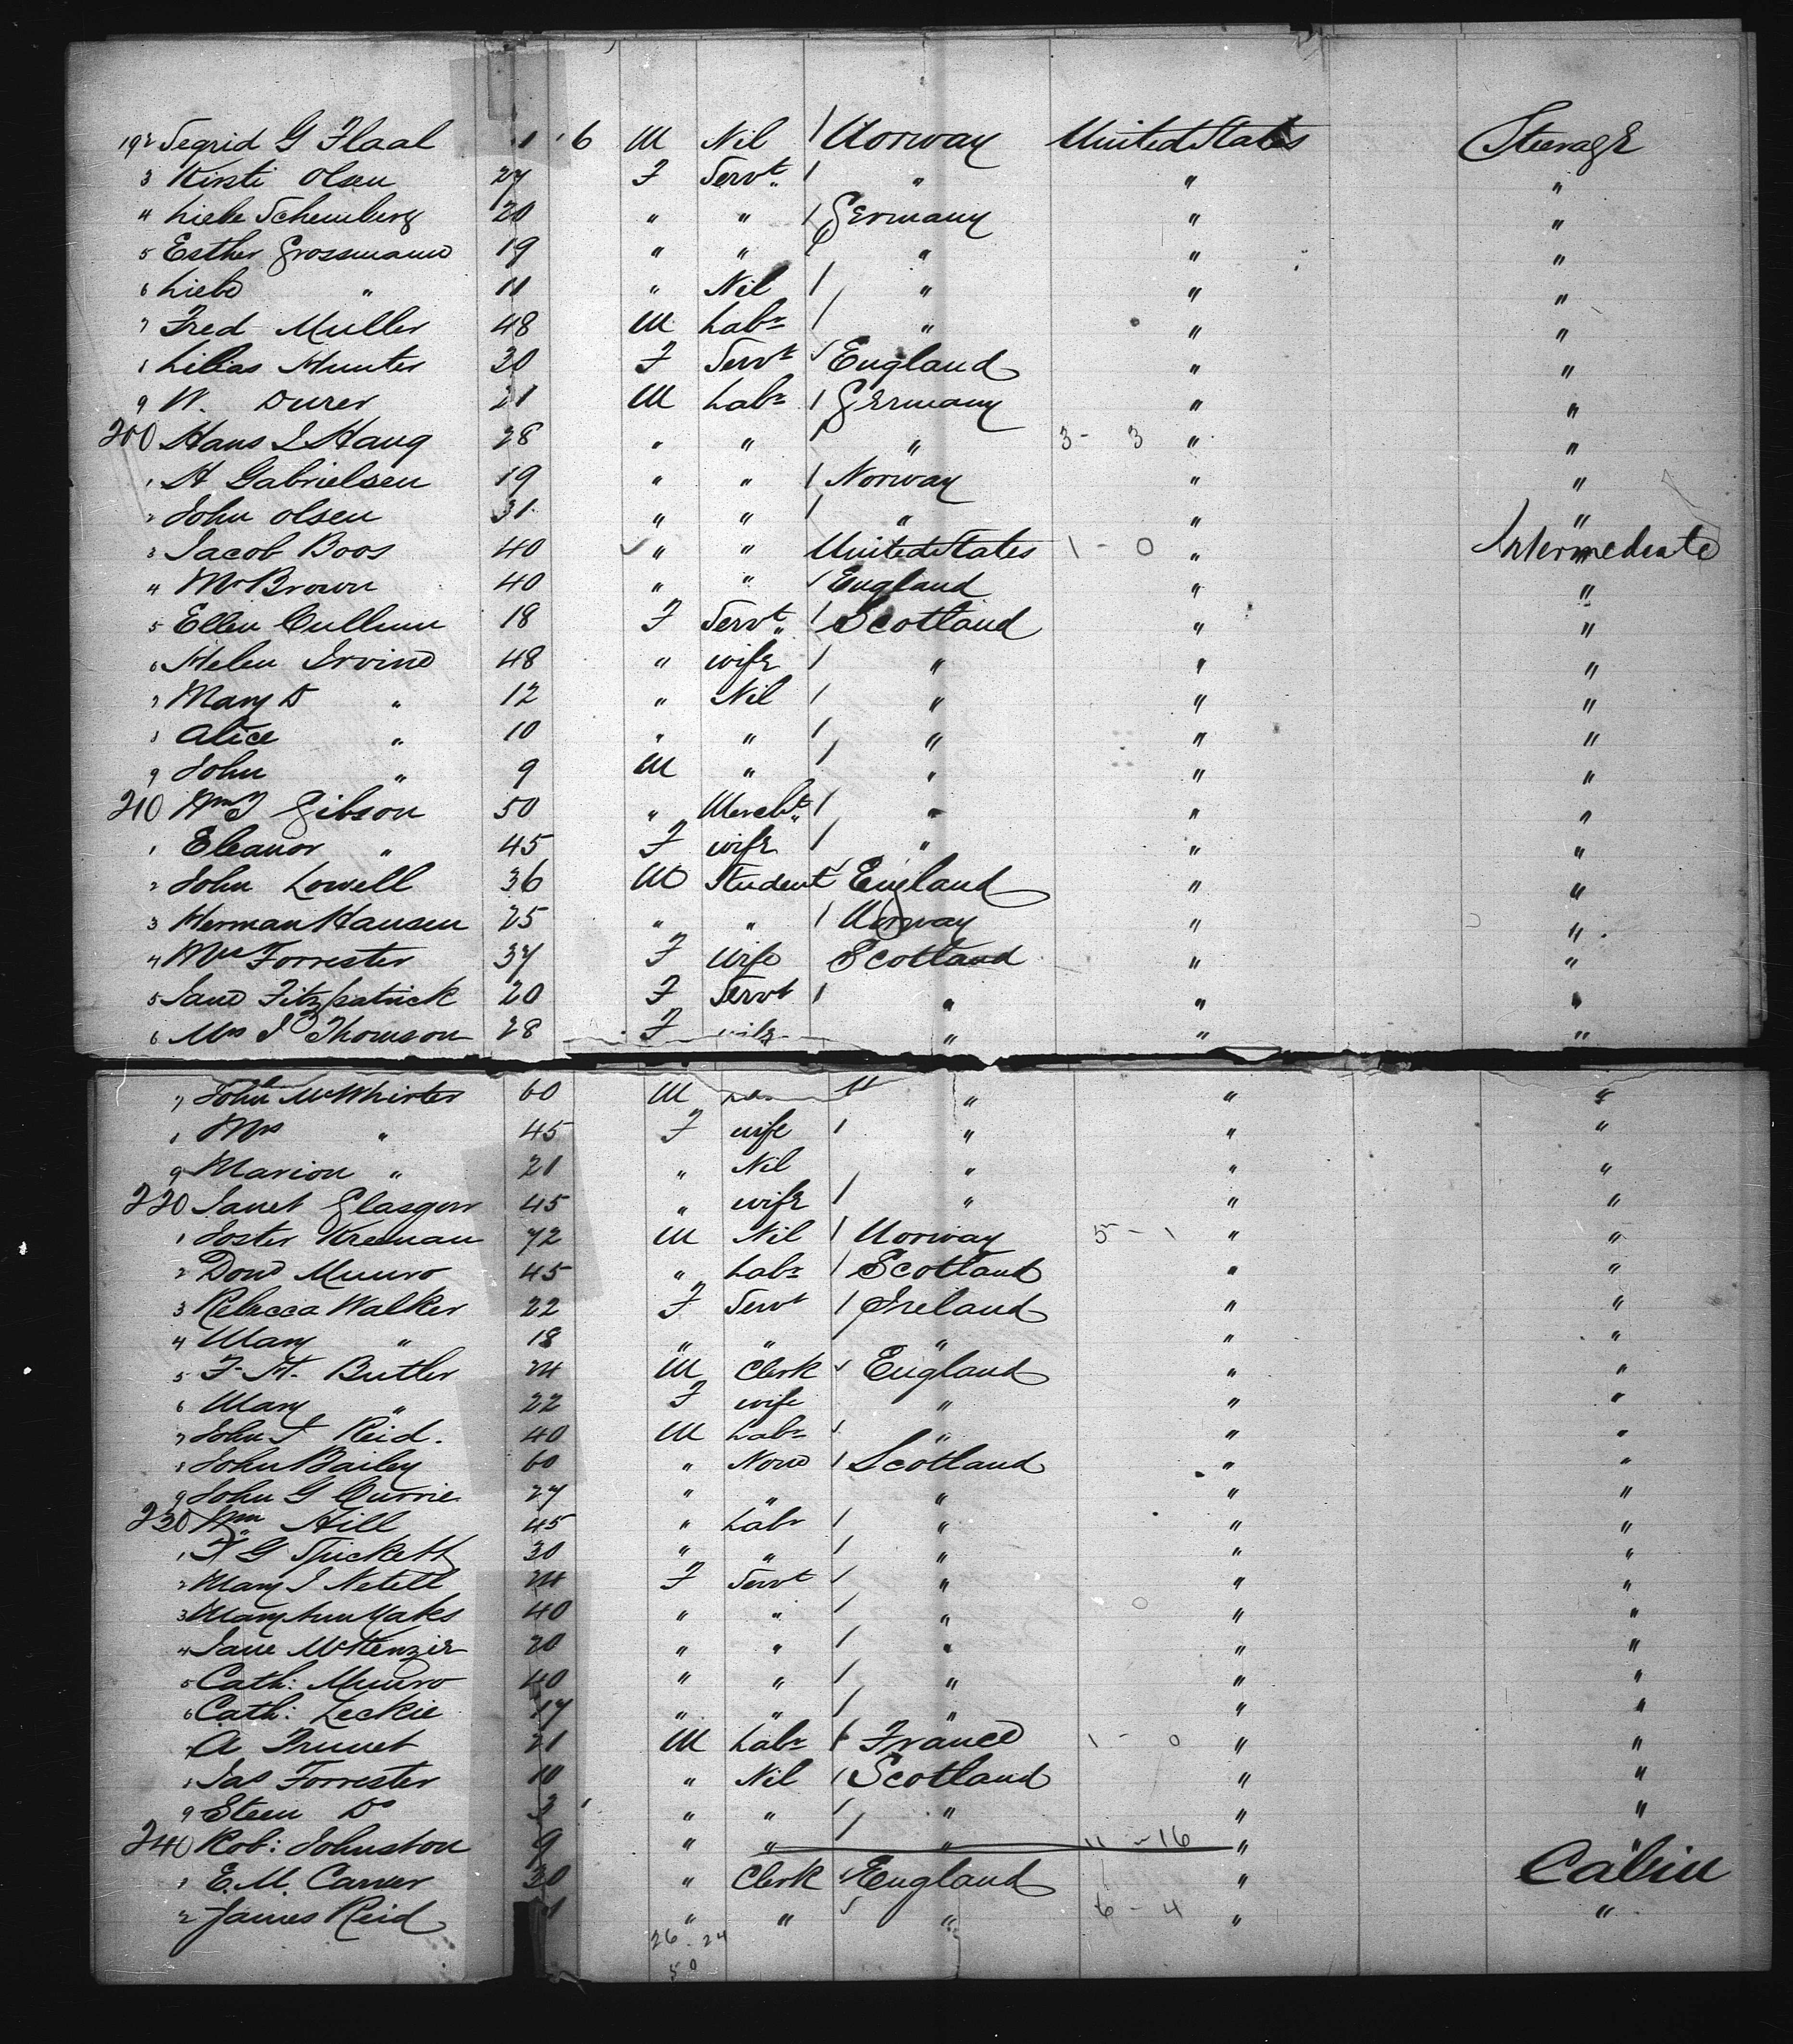 192 Segrid G Flaal 1 6 M Nil / Norway United States Steerage
3 Kirsti Olsen 27 F Servt / " " "
4 Liebe Schemberg 20 " " / Germany " "
5 Esther Grossmann 19 " " / " " "
6 Liebe " 11 " Nil / " " "
7 Fred Muller 48 M Labr / " " "
8 Lilias Hunter 30 F Servt √ England " "
9 W. Durer 21 M Labr / Germany " "
200 Hans L Haug 28 " " / " 3 - 3 " "
1 H Gabrielsen 19 " " / Norway " "
2 John Olsen 31 " " / " " "
3 Jacob Boos 40 √ " " United States 1 - 0 " Intermediate
4 Mr Brown 40 " " √ England " "
5 Ellen Cullum 18 F Servt / Scotland " "
6 Helen Irvine 48 " wife / " " "
7 Mary D " 12 " Nil / " " "
8 Alice " 10 " " / " " "
9 John " 9 M " / " " "
210 Wm J Gibson 50 " Mercht / " " "
1 Eleanor " 45 F wife / " " "
2 John Lowell 36 M Student √ England " "
3 Herman Hansen 25 " " / Norway " "
4 Mrs Forrester 37 F Wife Scotland " "
5 Jane Fitzpatrick 20 F Servt / " " "
6 Mrs J Thomson 28 F wife " " "
7 John McWhirter 60 M " " "
8 Mrs " 45 F wife / " " "
9 Marion " 21 " Nil " " "
220 Janet Glasgow 45 " wife / " " "
1 Foster Kreeman 72 M Nil / Norway 5 - 1 " "
2 Dond Munro 45 " Labr / Scotland " "
3 Rebecca Walker 22 F Servt / Ireland " "
4 Mary " 18 " " / " " "
5 F. H. Butler 24 M Clerk √ England " "
6 Mary " 22 F wife " " "
7 John J Reid. 40 M Labr √ " " "
8 John Bailey 60 " None / Scotland " "
9 John G Currie 27 " " " " "
230 Wm Hill 45 " Labr / " " "
1 G Spickett 30 " " / " " "
2 Mary J Netell 24 F Servt / " " "
3 Mary Ann Yates 40 " " / " 0 " "
4 Jane McKenzie 20 " " / " " "
5 Cath: Munro 40 " " / " " "
6 Cath: Leckie 17 " " / " " "
7 A Trunet 21 M Labr / France 1 - 0 " "
8 Jas Forrester 10 " Nil / Scotland " "
9 Steen Do 3 " " / " " "
240 Rob: Johnston 9 " " / " 11 - 16 " "
1 E. M. Carver 30 " Clerk √ England " Cabin
2 James Reid " " √ " 6 - 4 " "
26 . 24
50